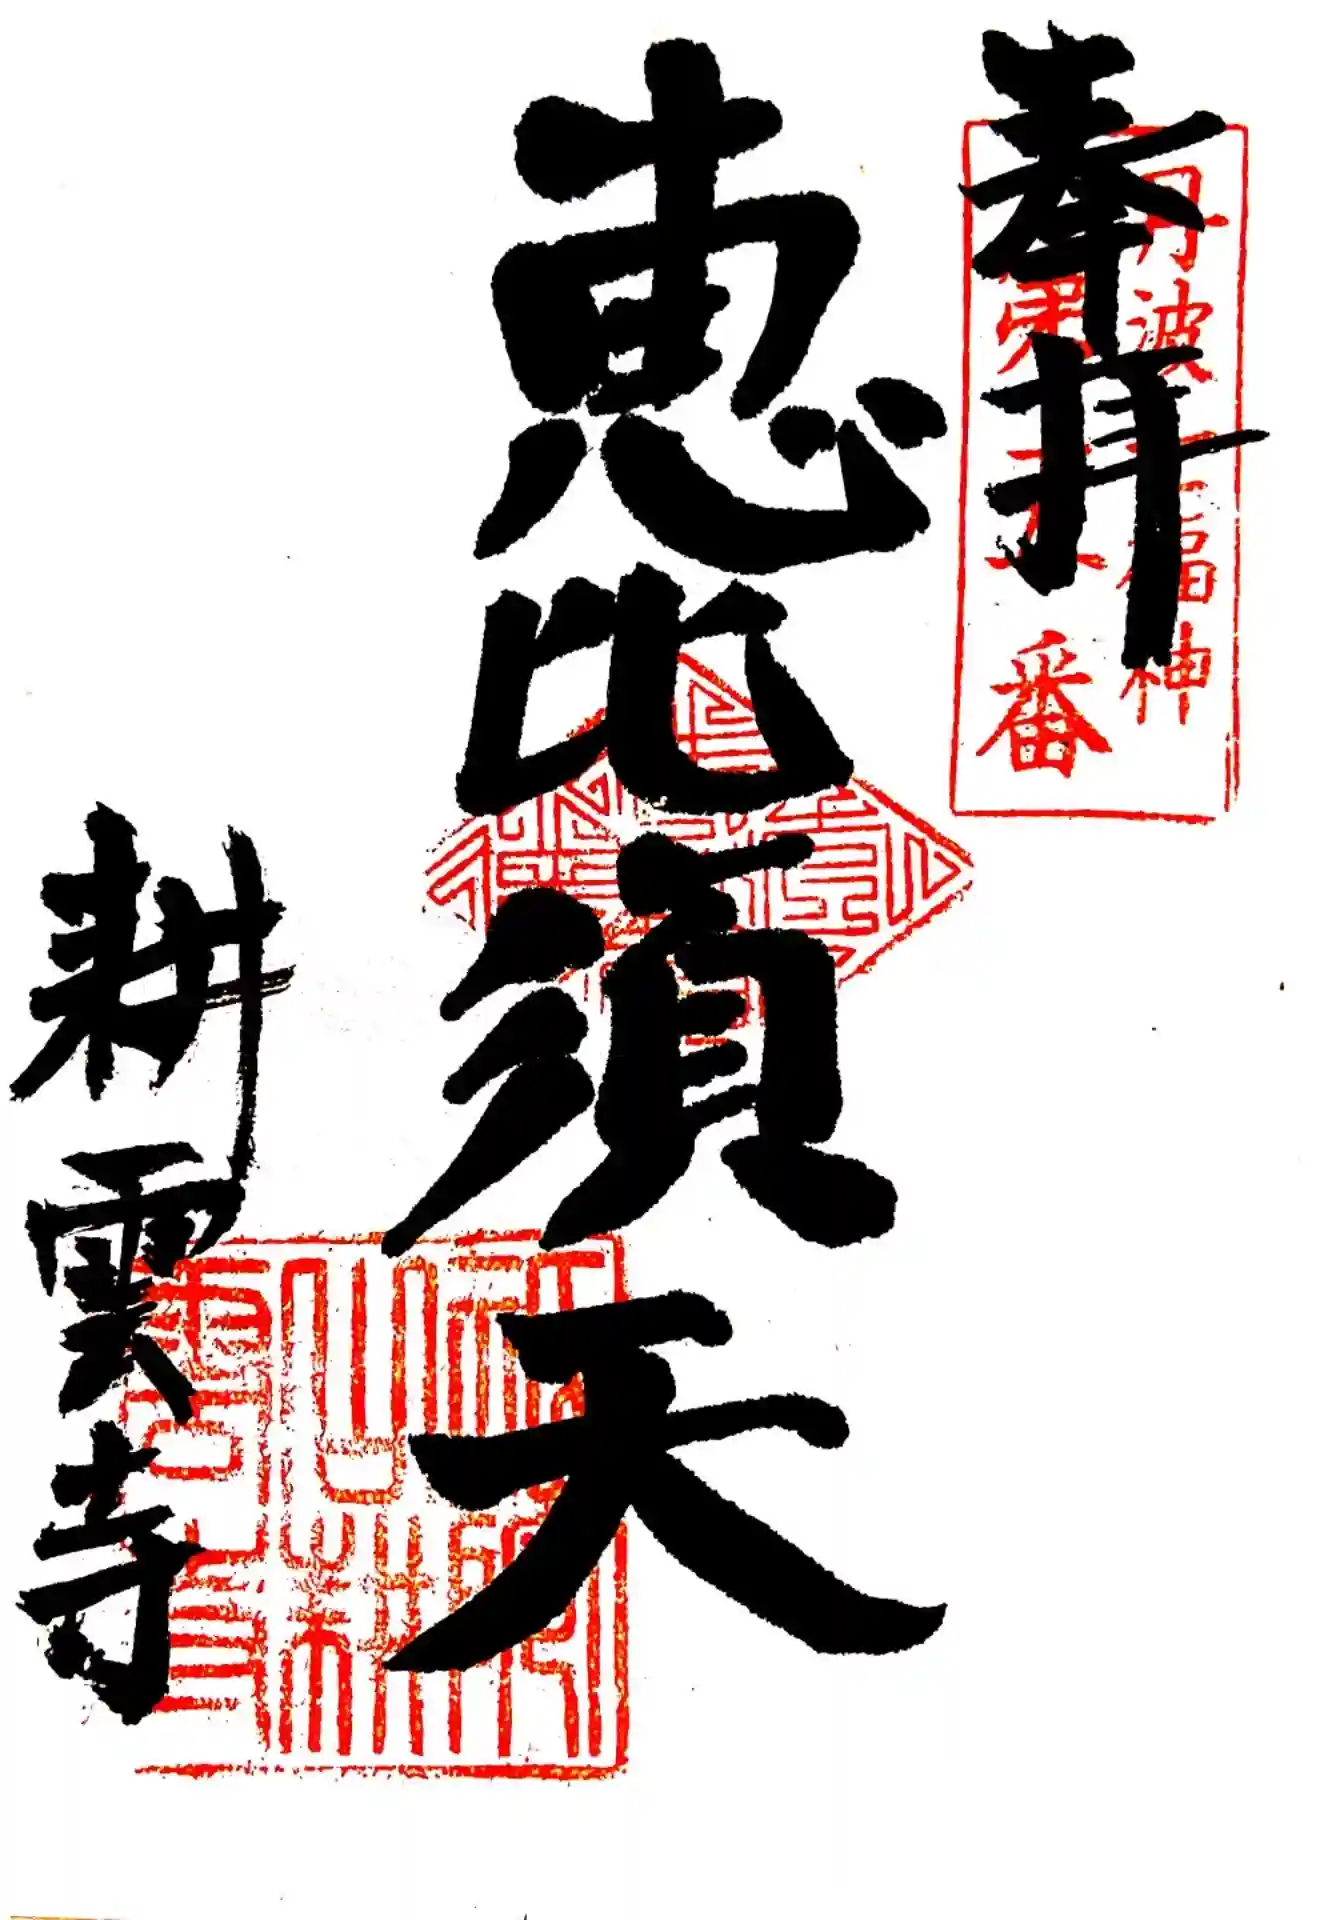 奉拝
丹波七福神
第 番
恵比須天
耕雲寺